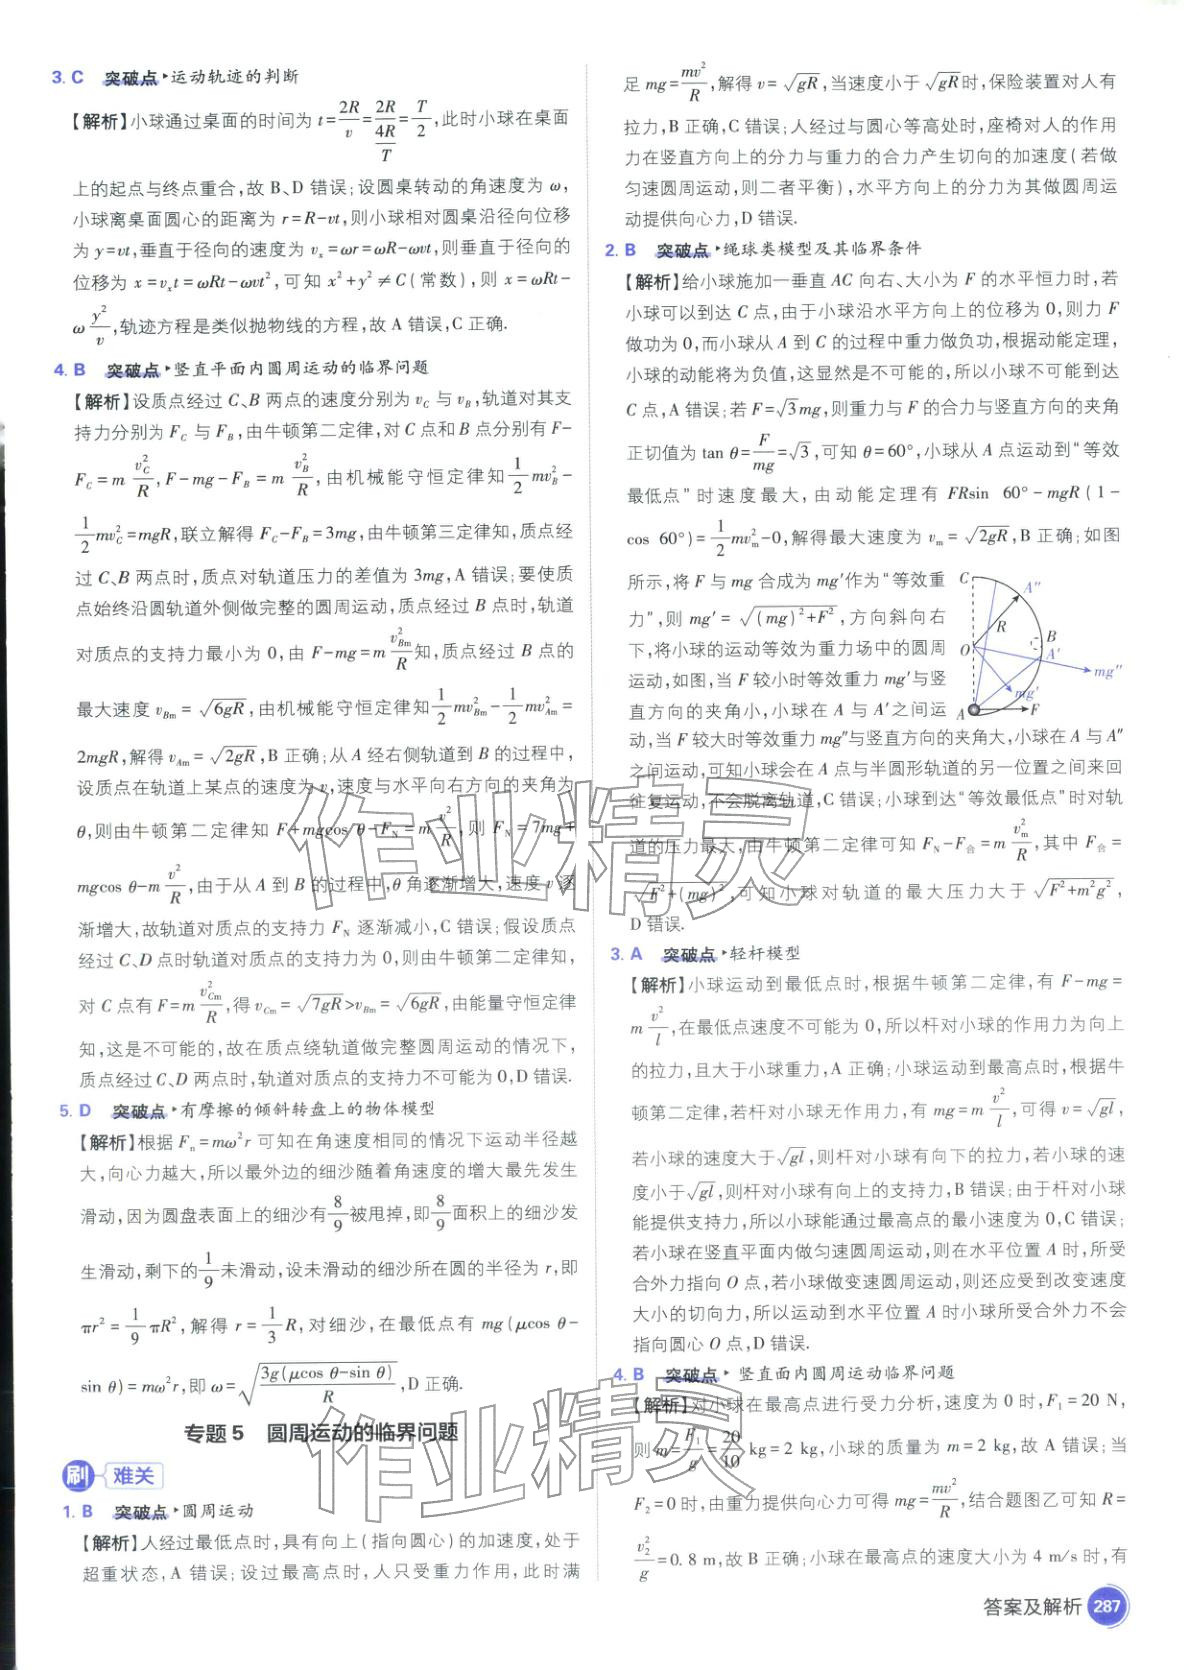 3. C 突破点·运动轨迹的判断
【解析】小球通过桌面的时间为 t=2R/v=2R/(4R/T)=T/2,此时小球在桌面
上的起点与终点重合,故 B、D 错误;设圆桌转动的角速度为 ω,
小球离桌面圆心的距离为 r=R-vt,则小球相对圆桌沿径向位移
为 y=vt,垂直于径向的速度为 vₓ=ωr=ωR-ωvt,则垂直于径向的
位移为 x=vₓt=ωRt-ωvt²,可知 x²+y²≠C(常数),则 x=ωRt-
ω y²/v,轨迹方程是类似抛物线的方程,故 A 错误,C 正确.
4. B 突破点·竖直平面内圆周运动的临界问题
【解析】设质点经过 C、B 两点的速度分别为 v_C 与 v_B,轨道对其支
持力分别为 F_C 与 F_B,由牛顿第二定律,对 C 点和 B 点分别有 F-
F_C=m v_C²/R,F-mg-F_B=m v_B²/R,由机械能守恒定律知 1/2 mv_B²-
1/2 mv_C²=mgR,联立解得 F_C-F_B=3mg,由牛顿第三定律知,质点经
过 C、B 两点时,质点对轨道压力的差值为 3mg,A 错误;要使质
点始终沿圆轨道外侧做完整的圆周运动,质点经过 B 点时,轨道
对质点的支持力最小为 0,由 F-mg=m v_Bm²/R 知,质点经过 B 点的
最大速度 v_Bm=√(6gR),由机械能守恒定律知 1/2 mv_Bm²-1/2 mv_Am²=
2mgR,解得 v_Am=√(2gR),B 正确;从 A 经右侧轨道到 B 的过程中,
设质点在轨道上某点的速度为 v,速度与水平向右方向的夹角为
θ,则由牛顿第二定律知 F+mgcos θ-F_N=m v²/R,则 F_N=7mg+
mgcos θ-m v²/R,由于从 A 到 B 的过程中,θ 角逐渐增大,速度 v 逐
渐增大,故轨道对质点的支持力 F_N 逐渐减小,C 错误;假设质点
经过 C、D 点时轨道对质点的支持力为 0,则由牛顿第二定律知,
对 C 点有 F=m v_Cm²/R,得 v_Cm=√(7gR)>v_Bm=√(6gR),由能量守恒定律
知,这是不可能的,故在质点绕轨道做完整圆周运动的情况下,
质点经过 C、D 两点时,轨道对质点的支持力不可能为 0,D 错误.
5. D 突破点·有摩擦的倾斜转盘上的物体模型
【解析】根据 F_n=mω²r 可知在角速度相同的情况下运动半径越
大,向心力越大,所以最外边的细沙随着角速度的增大最先发生
滑动,因为圆盘表面上的细沙有 8/9 被甩掉,即 8/9 面积上的细沙发
生滑动,剩下的 1/9 未滑动,设未滑动的细沙所在圆的半径为 r,即
πr²=1/9 πR²,解得 r=1/3 R,对细沙,在最低点有 mg(μcos θ-
sin θ)=mω²r,即 ω=√(3g(μcos θ-sin θ)/R),D 正确.
专题 5 圆周运动的临界问题
刷 难关
1. B 突破点·圆周运动
【解析】人经过最低点时,具有向上(指向圆心)的加速度,处于
超重状态,A 错误;设过最高点时,人只受重力作用,此时满
足 mg=mv²/R,解得 v=√(gR),当速度小于 √(gR)时,保险装置对人有
拉力,B 正确,C 错误;人经过与圆心等高处时,座椅对人的作用
力在竖直方向上的分力与重力的合力产生切向的加速度(若做
匀速圆周运动,则二者平衡),水平方向上的分力为其做圆周运
动提供向心力,D 错误.
2. B 突破点·绳球类模型及其临界条件
【解析】给小球施加一垂直 AC 向右、大小为 F 的水平恒力时,若
小球可以到达 C 点,由于小球沿水平方向上的位移为 0,则力 F
做功为 0,而小球从 A 到 C 的过程中重力做负功,根据动能定理,
小球的动能将为负值,这显然是不可能的,所以小球不可能到达
C 点,A 错误;若 F=√3mg,则重力与 F 的合力与竖直方向的夹角
正切值为 tan θ=F/mg=√3,可知 θ=60°,小球从 A 点运动到“等效
最低点”时速度最大,由动能定理有 FRsin 60°-mgR(1-
cos 60°)=1/2 mv_m²-0,解得最大速度为 v_m=√(2gR),B 正确;如图
所示,将 F 与 mg 合成为 mg′作为“等效重
力”,则 mg′=√((mg)²+F²),方向斜向右
下,将小球的运动等效为重力场中的圆周
运动,如图,当 F 较小时等效重力 mg′与竖
直方向的夹角小,小球在 A 与 A′之间运
C
A″
R
B
O
A′
mg″
mg′
A
F
动,当 F 较大时等效重力 mg″与竖直方向的夹角大,小球在 A 与 A″
之间运动,可知小球会在 A 点与半圆形轨道的另一位置之间来回
往复运动,不会脱离轨道,C 错误;小球到达“等效最低点”时对轨
道的压力最大,由牛顿第二定律可知 F_N-F_合=m v_m²/R,其中 F_合=
√(F²+(mg)²),可知小球对轨道的最大压力大于 √(F²+m²g²),
D 错误.
3. A 突破点·轻杆模型
【解析】小球运动到最低点时,根据牛顿第二定律,有 F-mg=
m v²/l,在最低点速度不可能为 0,所以杆对小球的作用力为向上
的拉力,且大于小球重力,A 正确;小球运动到最高点时,根据牛
顿第二定律,若杆对小球无作用力,有 mg=m v²/l,可得 v=√(gl),
若小球的速度大于√(gl),则杆对小球有向下的拉力,若小球的速
度小于√(gl),则杆对小球有向上的支持力,B 错误;由于杆对小球
能提供支持力,所以小球能通过最高点的最小速度为 0,C 错误;
若小球在竖直平面内做匀速圆周运动,则在水平位置 A 时,所受
合外力指向 O 点,若小球做变速圆周运动,则还应受到改变速度
大小的切向力,所以运动到水平位置 A 时小球所受合外力不会
指向圆心 O 点,D 错误.
4. B 突破点·竖直面内圆周运动临界问题
【解析】对小球在最高点进行受力分析,速度为 0 时,F₁=20 N,
则 m=F₁/g=20/10 kg=2 kg,小球的质量为 m=2 kg,故 A 错误;当
F₂=0 时,由重力提供向心力可得 mg=mv²/R,结合题图乙可知 R=
v₂²/g=0.8 m,故 B 正确;小球在最高点的速度大小为 4 m/s 时,有
答案及解析 287
作业精灵
作业精灵